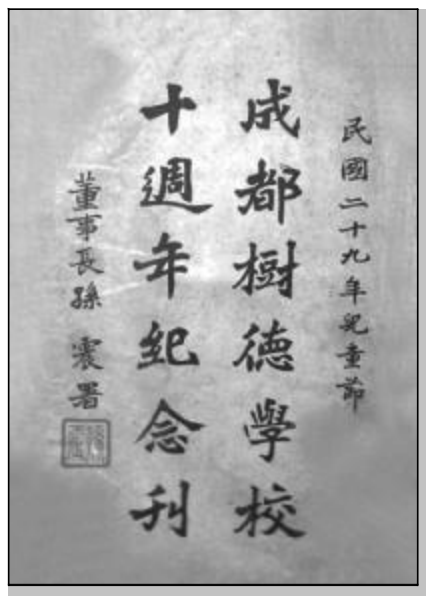 民國二十九年兒童節
成都樹德學校
十週年紀念刊
董事長孫震署